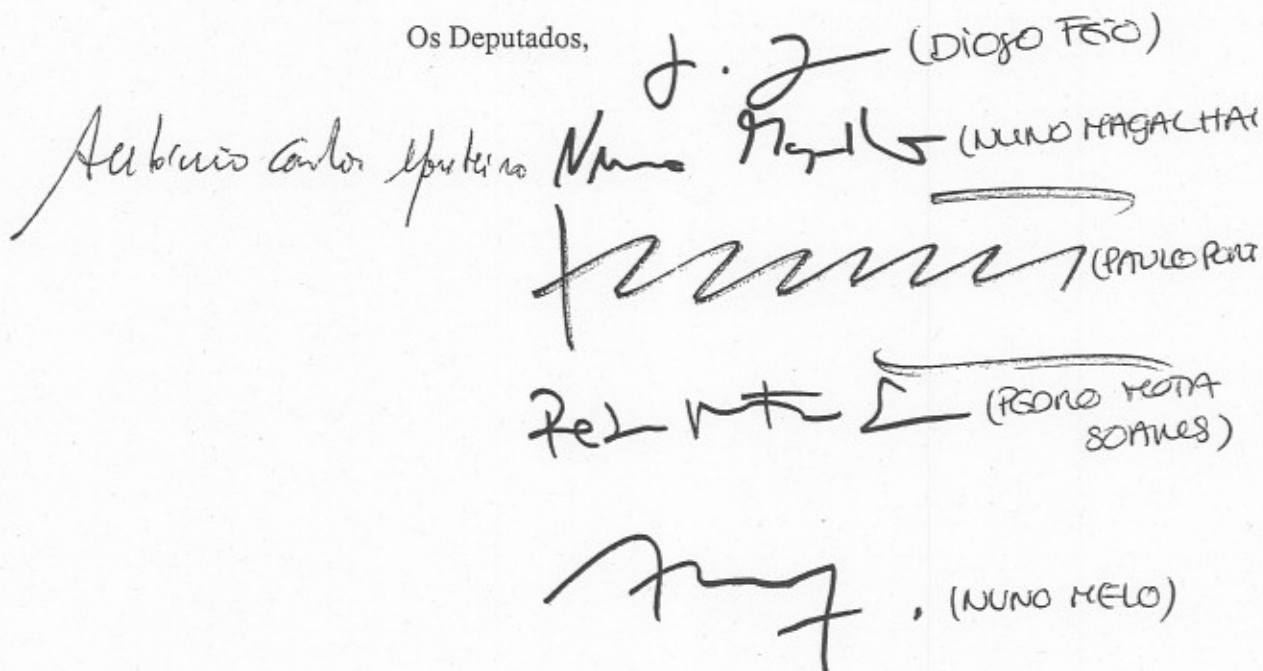 Os Deputados,
(DIOGO FEIO)
António Carlos Monteiro Nuno (NUNO MAGALHÃE
(PAULO PORT
(PEDRO MOTA
SOARES)
(NUNO MELO)